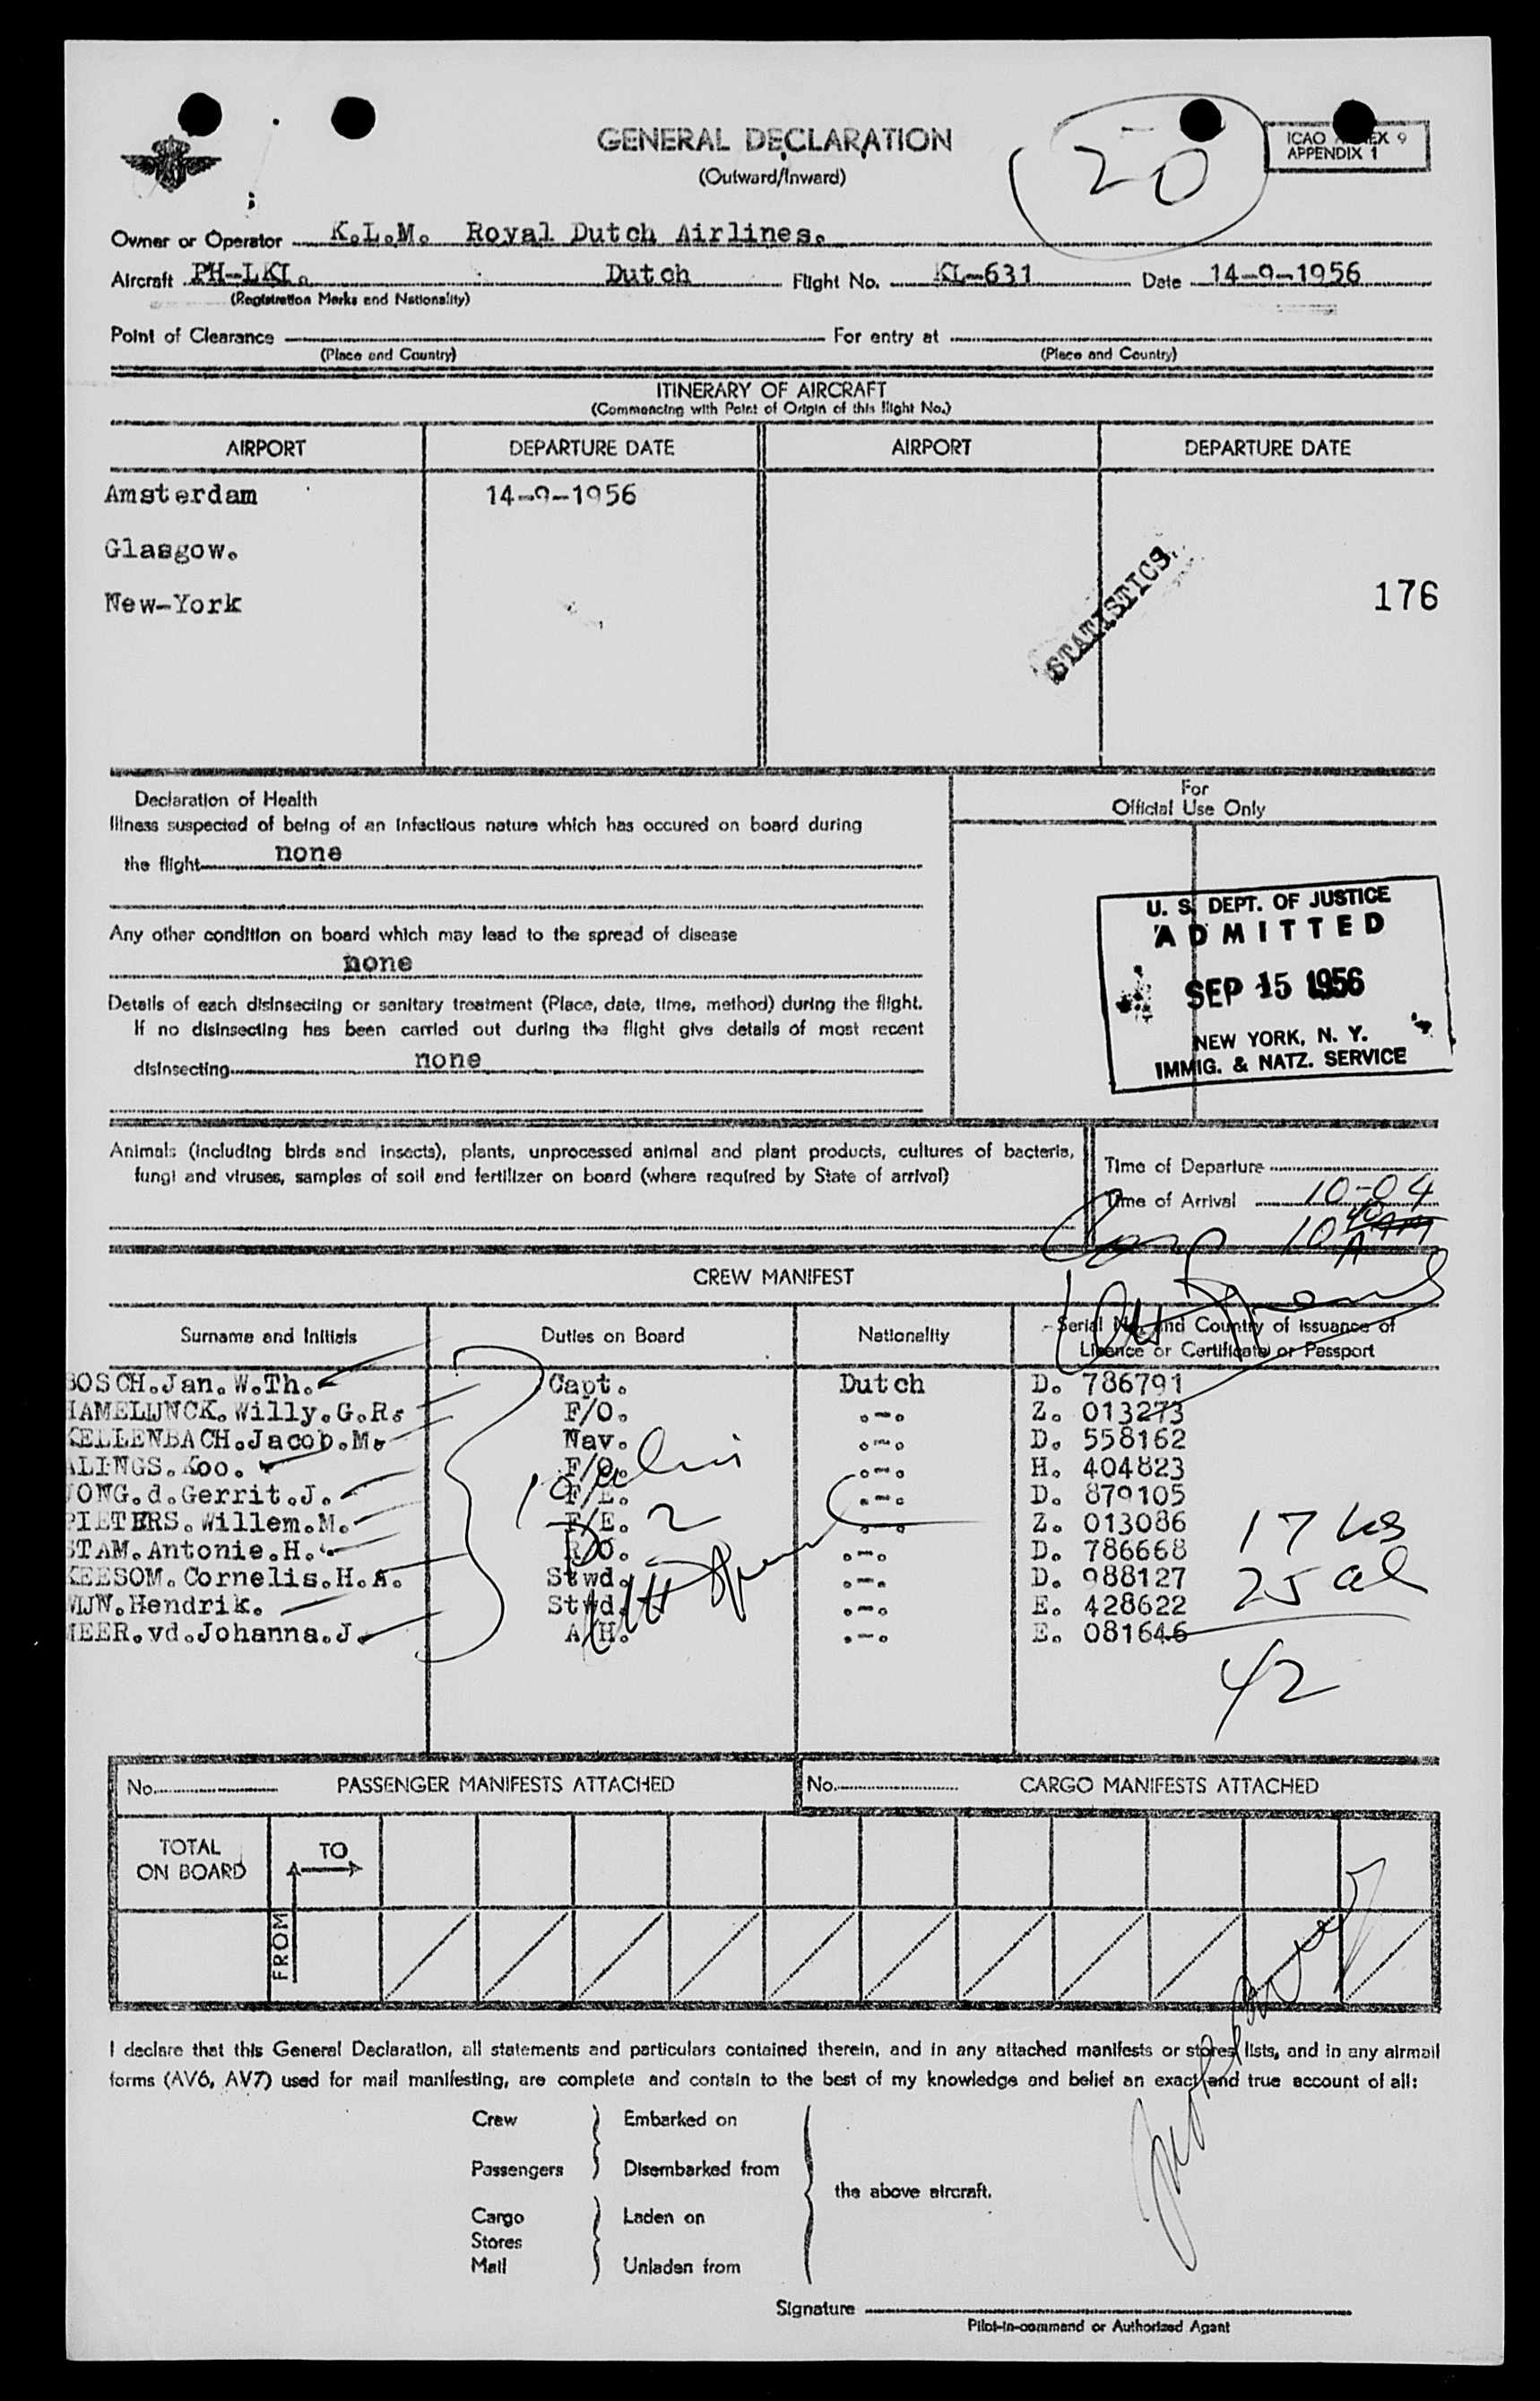 GENERAL DECLARATION
(Outward/Inward)
20
ICAO EX 9
APPENDIX 1
Owner or Operator K.L.M. Royal Dutch Airlines.
Aircraft PH-LKL. Dutch Flight No. KL-631 Date 14-9-1956
(Registration Marks and Nationality)
Point of Clearance For entry at
(Place and Country) (Place and Country)
ITINERARY OF AIRCRAFT
(Commencing with Point of Origin of this flight No.)
AIRPORT DEPARTURE DATE AIRPORT DEPARTURE DATE
Amsterdam 14-9-1956
Glasgow.
New-York
STATISTICS
176
Declaration of Health
Illness suspected of being of an infectious nature which has occured on board during
the flight none
Any other condition on board which may lead to the spread of disease
none
Details of each disinsecting or sanitary treatment (Place, date, time, method) during the flight.
If no disinsecting has been carried out during the flight give details of most recent
disinsecting none
For
Official Use Only
U. S. DEPT. OF JUSTICE
ADMITTED
SEP 15 1956
NEW YORK, N. Y.
IMMIG. & NATZ. SERVICE
Animals (including birds and insects), plants, unprocessed animal and plant products, cultures of bacteria,
fungi and viruses, samples of soil and fertilizer on board (where required by State of arrival)
Time of Departure
Time of Arrival 10-04
10 40 A
CREW MANIFEST
Surname and Initials Duties on Board Nationality Serial No. and Country of issuance of
Licence or Certificate or Passport
BOSCH.Jan.W.Th. Capt. Dutch D. 786791
HAMELIJNCK.Willy.G.R. F/O. .-. Z. 013273
KELLENBACH.Jacob.M. Nav. .-. D. 558162
ALINGS.Koo. F/O. .-. H. 404823
JONG.d.Gerrit.J. F/E. .-. D. 879105
PIETERS.Willem.M. F/E. .-. Z. 013086
STAM.Antonie.H. R/O. .-. D. 786668
KEESOM.Cornelis.H.A. Stwd. .-. D. 988127
WIJN.Hendrik. Stwd. .-. E. 428622
MEER.vd.Johanna.J. A/H. .-. E. 081646
17
25 al
42
No. PASSENGER MANIFESTS ATTACHED No. CARGO MANIFESTS ATTACHED
TOTAL
ON BOARD
TO
FROM
I declare that this General Declaration, all statements and particulars contained therein, and in any attached manifests or stores lists, and in any airmail
forms (AV6, AV7) used for mail manifesting, are complete and contain to the best of my knowledge and belief an exact and true account of all:
Crew Embarked on
Passengers Disembarked from
the above aircraft.
Cargo Laden on
Stores
Mail Unladen from
Signature
Pilot-in-command or Authorized Agent